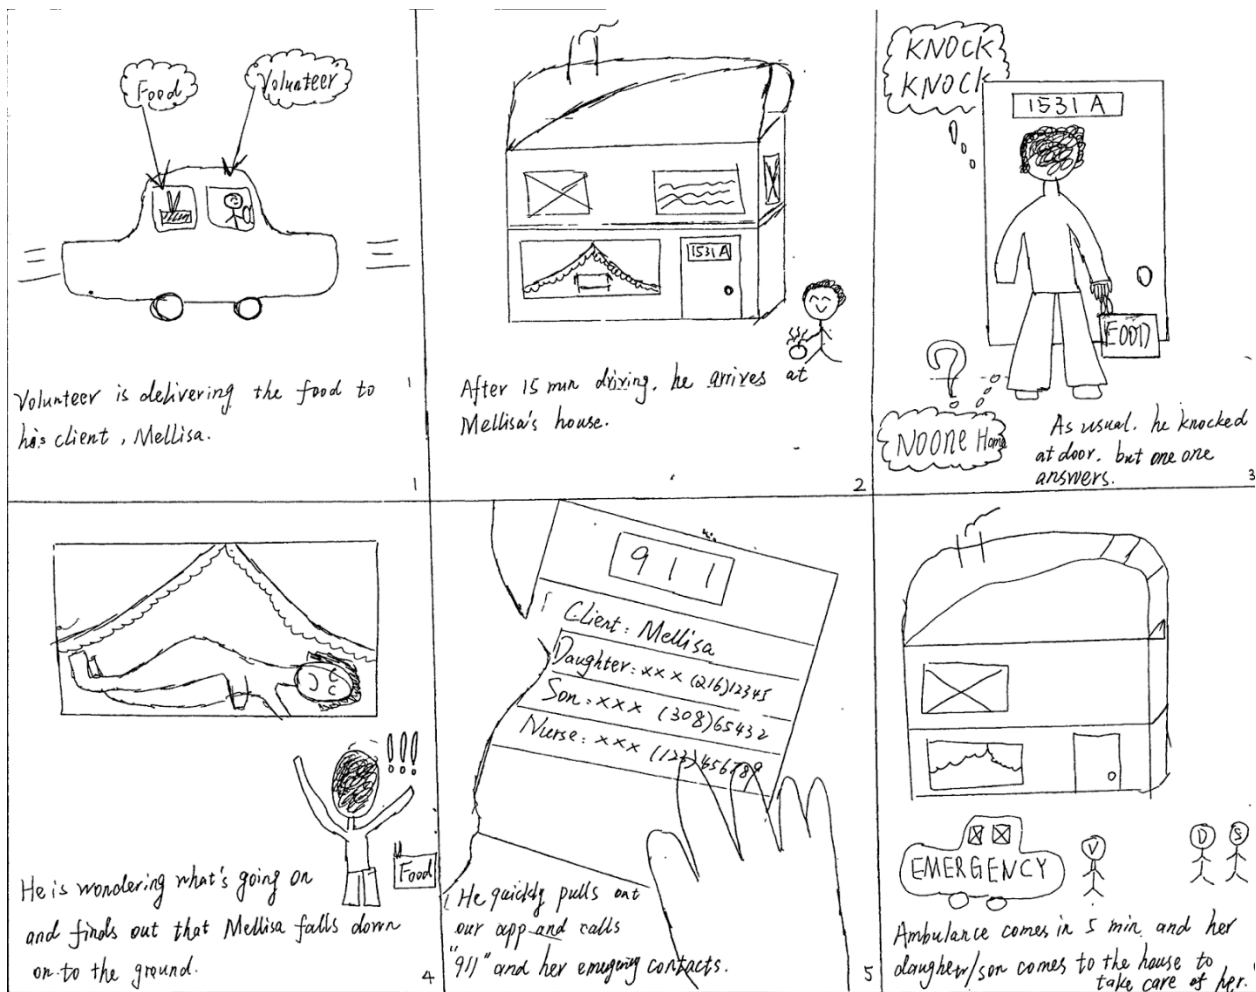 Food
Volunteer
Volunteer is delivering the food to
his client, Mellisa.
1
1
1531 A
After 15 min driving, he arrives at
Mellisa's house.
2
KNOCK
KNOCK
1531 A
FOOD
?
NO ONE Home
As usual. he knocked
at door. but one one
answers.
3
!!!
Food
He is wondering what's going on
and finds out that Mellisa falls down
on to the ground.
4
911
Client: Mellisa
Daughter: xxx (216)12345
Son: xxx (308)65432
Nurse: xxx (123)456789
He quickly pulls out
our app and calls
"911" and her emergency contacts.
5
EMERGENCY
V
D S
Ambulance comes in 5 min. and her
daughter/son comes to the house to
take care of her.